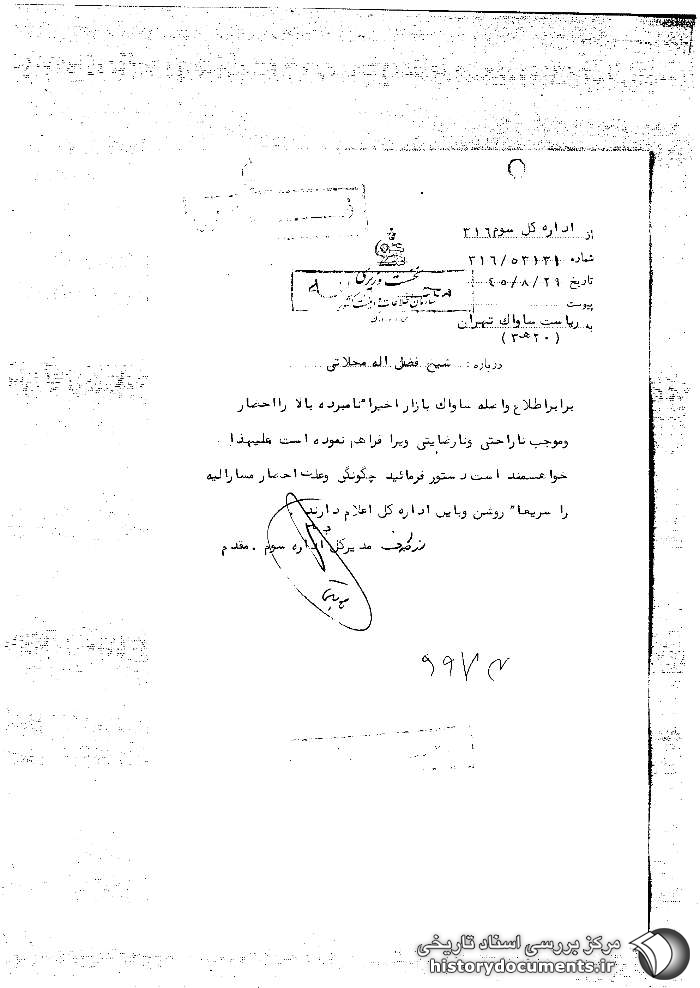 از اداره کل سوم ۳۱۶
شماره ۳۱۶/۵۳۱۳۱
تاریخ ۴۵/۸/۲۹
پیوست
به ریاست ساواک تهران
(۲۰ ه ۳)
نخست وزیری
سازمان اطلاعات و امنیت کشور
درباره : شیخ فضل اله محلاتی
برابر اطلاع واصله ساواک بازار اخیرا" نامبرده بالا را احضار
وموجب ناراحتی ونارضایتی ویرا فراهم نموده است علیهذا
خواهشمند است دستور فرمائید چگونگی وعلت احضار مشارالیه
را سریعا" روشن وباین اداره کل اعلام دارند .
مدیرکل اداره سوم . مقدم
مرکز بررسی اسناد تاریخی
historydocuments.ir